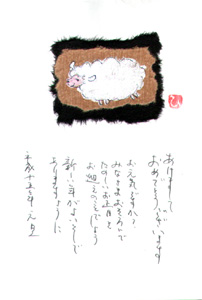 あけまして
おめでとうございます
お元気ですか
みなさまおそろいで
たのしいお正月を
お迎えのことでしょう
新しい年がよい年で
ありますように
平成十五年 元旦